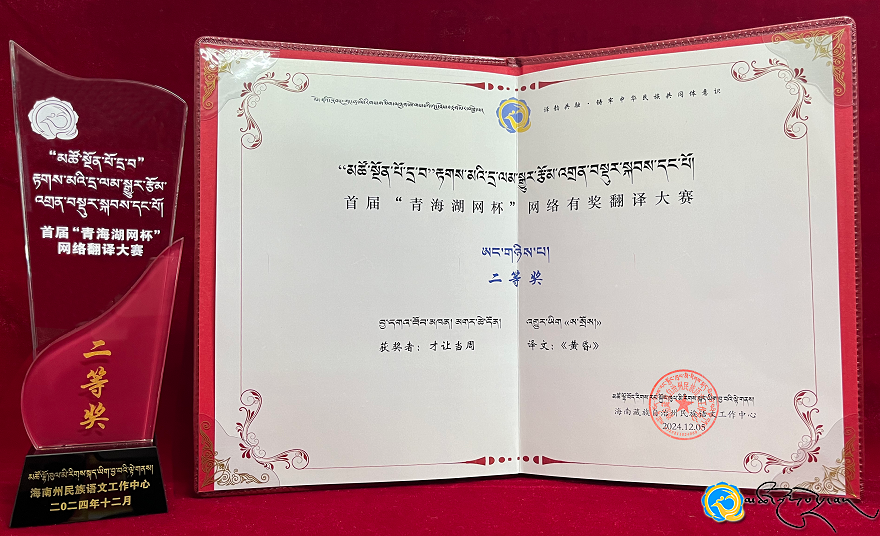 “མཚོ་སྔོན་པོ་དྲ་བ”
རྟགས་མའི་དྲ་ལམ་སྒྱུར་རྩོམ་
འགྲན་བསྡུར་སྐབས་དང་པོ།
首届“青海湖网杯”
网络翻译大赛
二等奖
མཚོ་ལྷོ་ཁུལ་མི་རིགས་སྐད་ཡིག་བྱ་བའི་ལྟེ་གནས།
海南州民族语文工作中心
二〇二四年十二月
译韵共融·铸牢中华民族共同体意识
“མཚོ་སྔོན་པོ་དྲ་བ”རྟགས་མའི་དྲ་ལམ་སྒྱུར་རྩོམ་འགྲན་བསྡུར་སྐབས་དང་པོ།
首届“青海湖网杯”网络有奖翻译大赛
ཨང་གཉིས་པ།
二等奖
བྱ་དགའ་ཐོབ་མཁན། མགར་ཚེ་དོན། འགྱུར་ཡིག 《ས་སྲོས།》
获奖者：才让当周 译文：《黄昏》
མཚོ་ལྷོ་བོད་རིགས་རང་སྐྱོང་ཁུལ་མི་རིགས་སྐད་ཡིག་བྱ་བའི་ལྟེ་གནས།
海南藏族自治州民族语文工作中心
2024.12.05